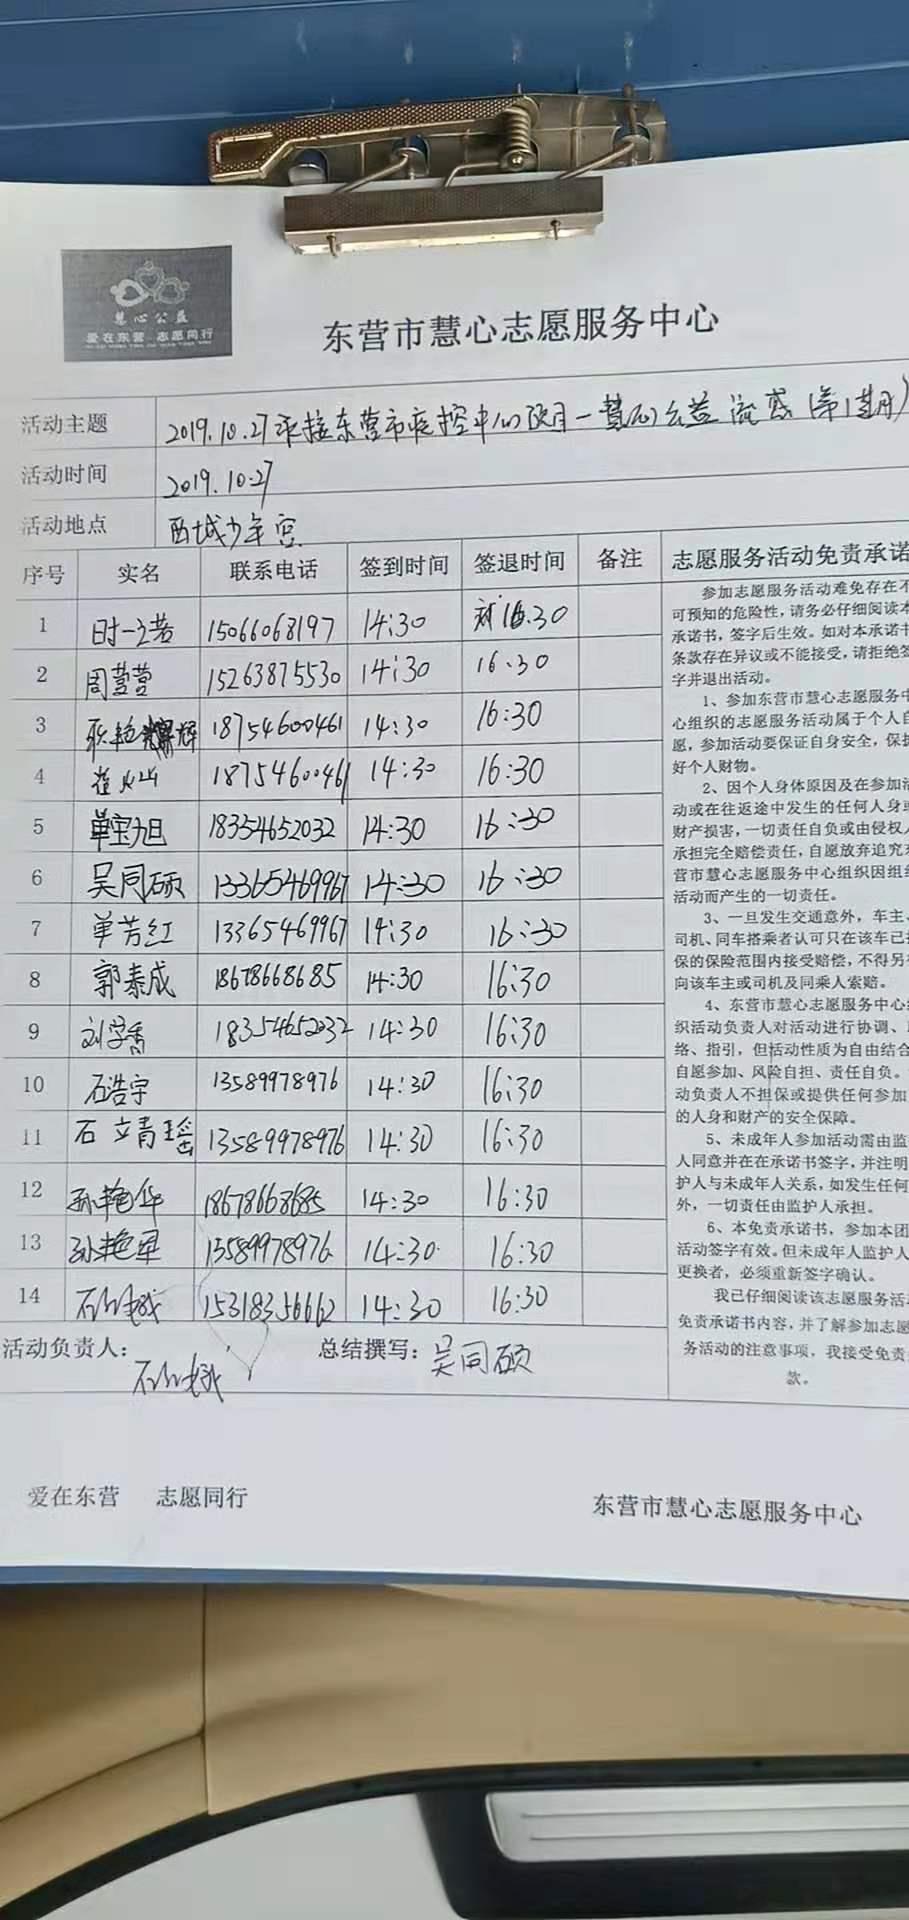 慧心公益
爱在东营 志愿同行
东营市慧心志愿服务中心
活动主题 2019.10.27承接东营市疾控中心项目一慧心公益流感(第1期)
活动时间 2019.10.27
活动地点 西城少年宫
序号 实名 联系电话 签到时间 签退时间 备注
1 15066068197 14:30 16.30
2 周萱萱 15263875530 14:30 16:30
3 耿艳辉 18754600461 14:30 16:30
4 崔火山 18754600461 14:30 16:30
5 单宝旭 18354652032 14:30 16:30
6 吴同硕 13365469967 14:30 16:30
7 单芳红 13365469967 14:30 16:30
8 郭泰成 18678668685 14:30 16:30
9 刘学香 18354652032 14:30 16:30
10 石浩宇 13589978976 14:30 16:30
11 石立青瑶 13589978976 14:30 16:30
12 孙艳华 18678668685 14:30 16:30
13 孙艳军 13589978976 14:30 16:30
14 15318356662 14:30 16:30
活动负责人: 总结撰写: 吴同硕
志愿服务活动免责承诺
参加志愿服务活动难免存在不
可预知的危险性,请务必仔细阅读本
承诺书,签字后生效。如对本承诺书
条款存在异议或不能接受,请拒绝签
字并退出活动。
1、参加东营市慧心志愿服务中
心组织的志愿服务活动属于个人自
愿,参加活动要保证自身安全,保护
好个人财物。
2、因个人身体原因及在参加活
动或在往返途中发生的任何人身或
财产损害,一切责任自负或由侵权人
承担完全赔偿责任,自愿放弃追究东
营市慧心志愿服务中心组织因组织
活动而产生的一切责任。
3、一旦发生交通意外,车主、
司机、同车搭乘者认可只在该车已投
保的保险范围内接受赔偿,不得另行
向该车主或司机及同乘人索赔。
4、东营市慧心志愿服务中心组
织活动负责人对活动进行协调、联
络、指引,但活动性质为自由结合、
自愿参加、风险自担、责任自负。
动负责人不担保或提供任何参加
的人身和财产的安全保障。
5、未成年人参加活动需由监
人同意并在在承诺书签字,并注明
护人与未成年人关系,如发生任何
外,一切责任由监护人承担。
6、本免责承诺书,参加本团
活动签字有效。但未成年人监护人
更换者,必须重新签字确认。
我已仔细阅读该志愿服务活动
免责承诺书内容,并了解参加志愿
务活动的注意事项,我接受免责
款。
爱在东营 志愿同行
东营市慧心志愿服务中心